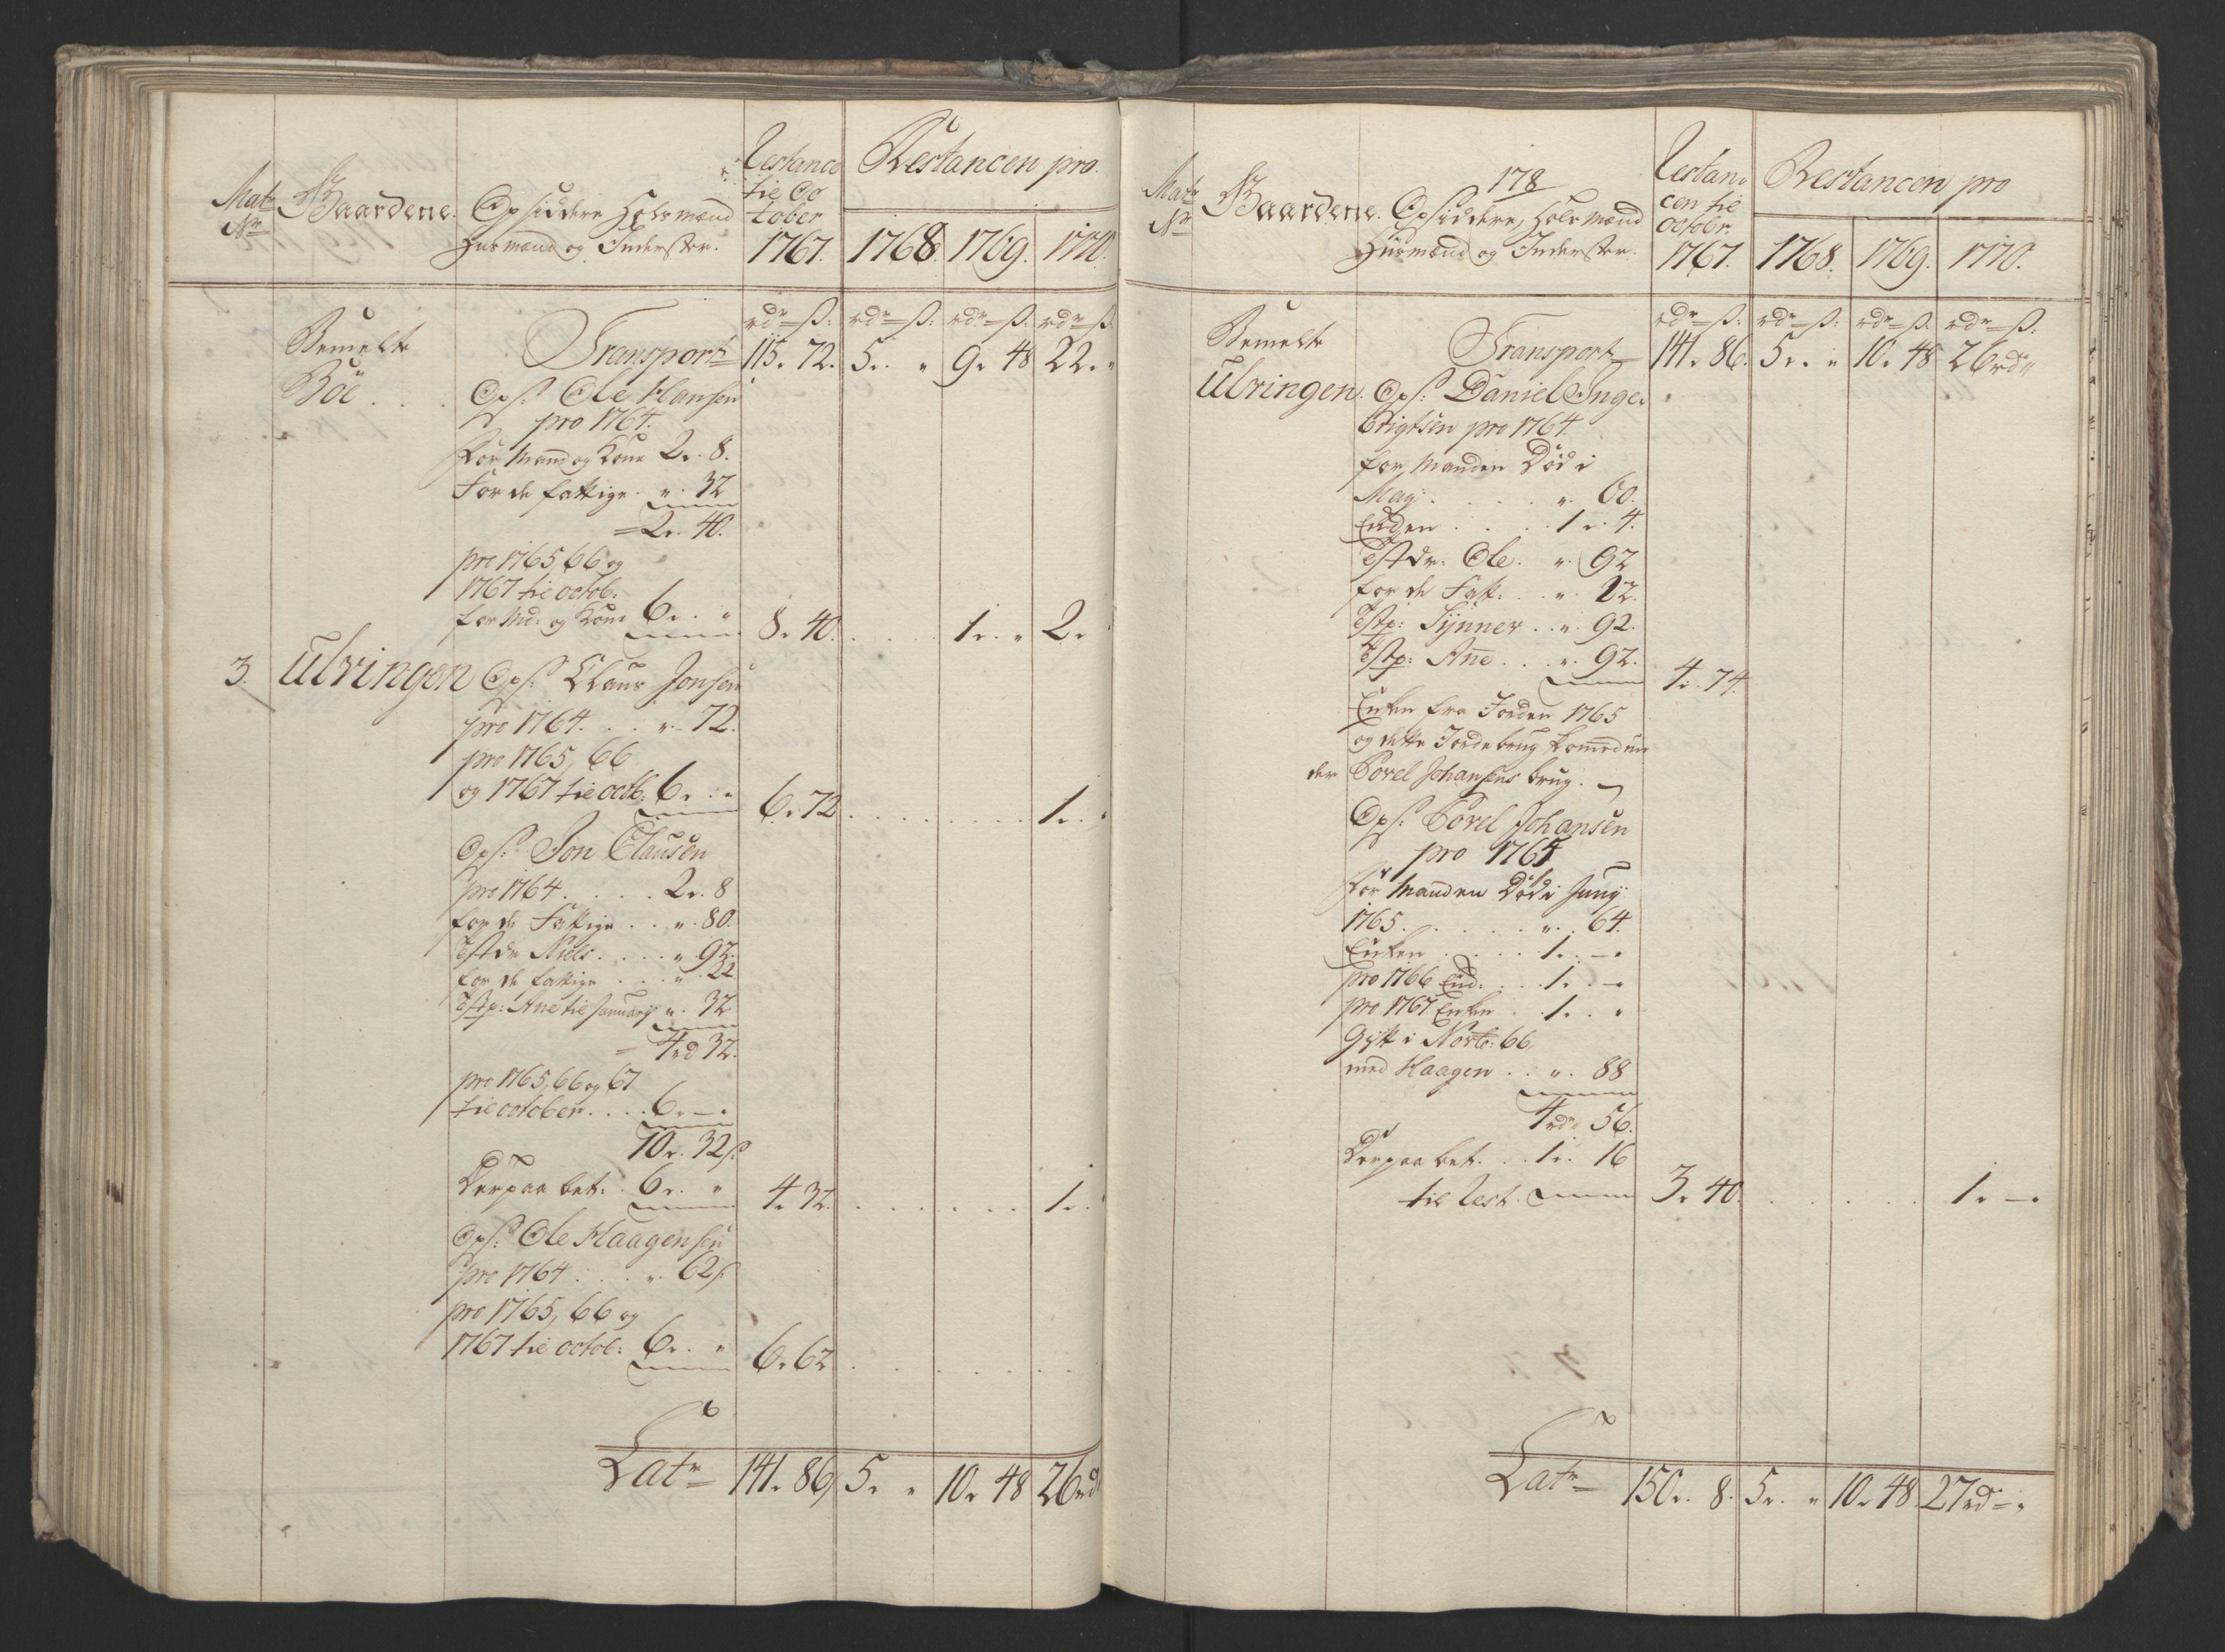 Matr
No
Gaardene.
Opsiddere Holsmænd
Husmænd og Inderster.
Restance
til Oc
tober
1767.
Restancen pro.
1768. 1769. 1770.
rdr ß: rdr ß: rdr ß: rdr ß
Bemelte
Böe . . .
Transport 115. 72. 5. " 9. 48 22. "
Ops: Ole Hansen
pro 1764.
For Mand og Kone 2. 8.
For de fattige. ". 32
= 2. 40.
pro 1765, 66 og
1767 til octob:
for Md: og Kone 6. " 8. 40. . . . 1. " 2.
3. Ulvingen Ops: Claus Jonsen
pro 1764. . . ". 72.
pro 1765, 66
og 1767 til octb: 6. " 6. 72 . . . . . . 1. "
Ops: Jon Clausen
pro 1764 . . . . 2. 8
for de Fattige . . ". 80.
Tstdr Niels . . . . " 92.
for de fattige . . . " 22
Tstp: Ane til January ". 32
= 4rd 32.
pro 1765, 66 og 67
til october . . . . 6. —"
10. 32ß
Derpaa bet: . 6. " 4. 32. . . . . . . 1. "
Ops: Ole Haagensen
pro 1764 . . . ". 62ß
pro 1765, 66 og
1767 til octob: 6. " 6. 62 . . . . . .
Latr 141. 86, 5. " 10. 48 26rd
178
Matr
No
Gaardene.
Opsiddere, Holsmænd
Husmænd og Inderster.
Restan
cen til
Octobr.
1767.
Restancen pro
1768. 1769. 1770.
rdr ß: rdr ß: rdr ß. rdr ß.
Bemelte
Ulvingen.
Transport 141. 86. 5. " 10. 48 26rd "
Ops: Daniel Inge-
brigtsen pro 1764.
for Manden Död i
Maÿ . . . . . ". 60.
Enken . . . . 1. 4.
Tstdr: Ole. ". 92
for de Fatt: . . ". 22.
Tstp: Sÿnnev . . ". 92.
Tstp: Ane . . . ". 92. 4. 74.
Enken fra Jorden 1765
og dette Jordebrug kommed un
der Povel Johansens brug.
Ops: Povel Johansen
pro 1764
For Manden Död i Junÿ
1765. . . . . . ". 64.
Enken . . . . . 1. —"
pro 1766 End: . . . 1. —"
pro 1767 Enken . . 1. . "
Gift i Novbr: 66,
med Haagen . . ". 88
4rdr 56.
Derpaa bet. . . 1. 16
til Rest. 3. 40. . . . . . 1. —"
Latr 150. 8. 5. " 10. 48. 27rd "